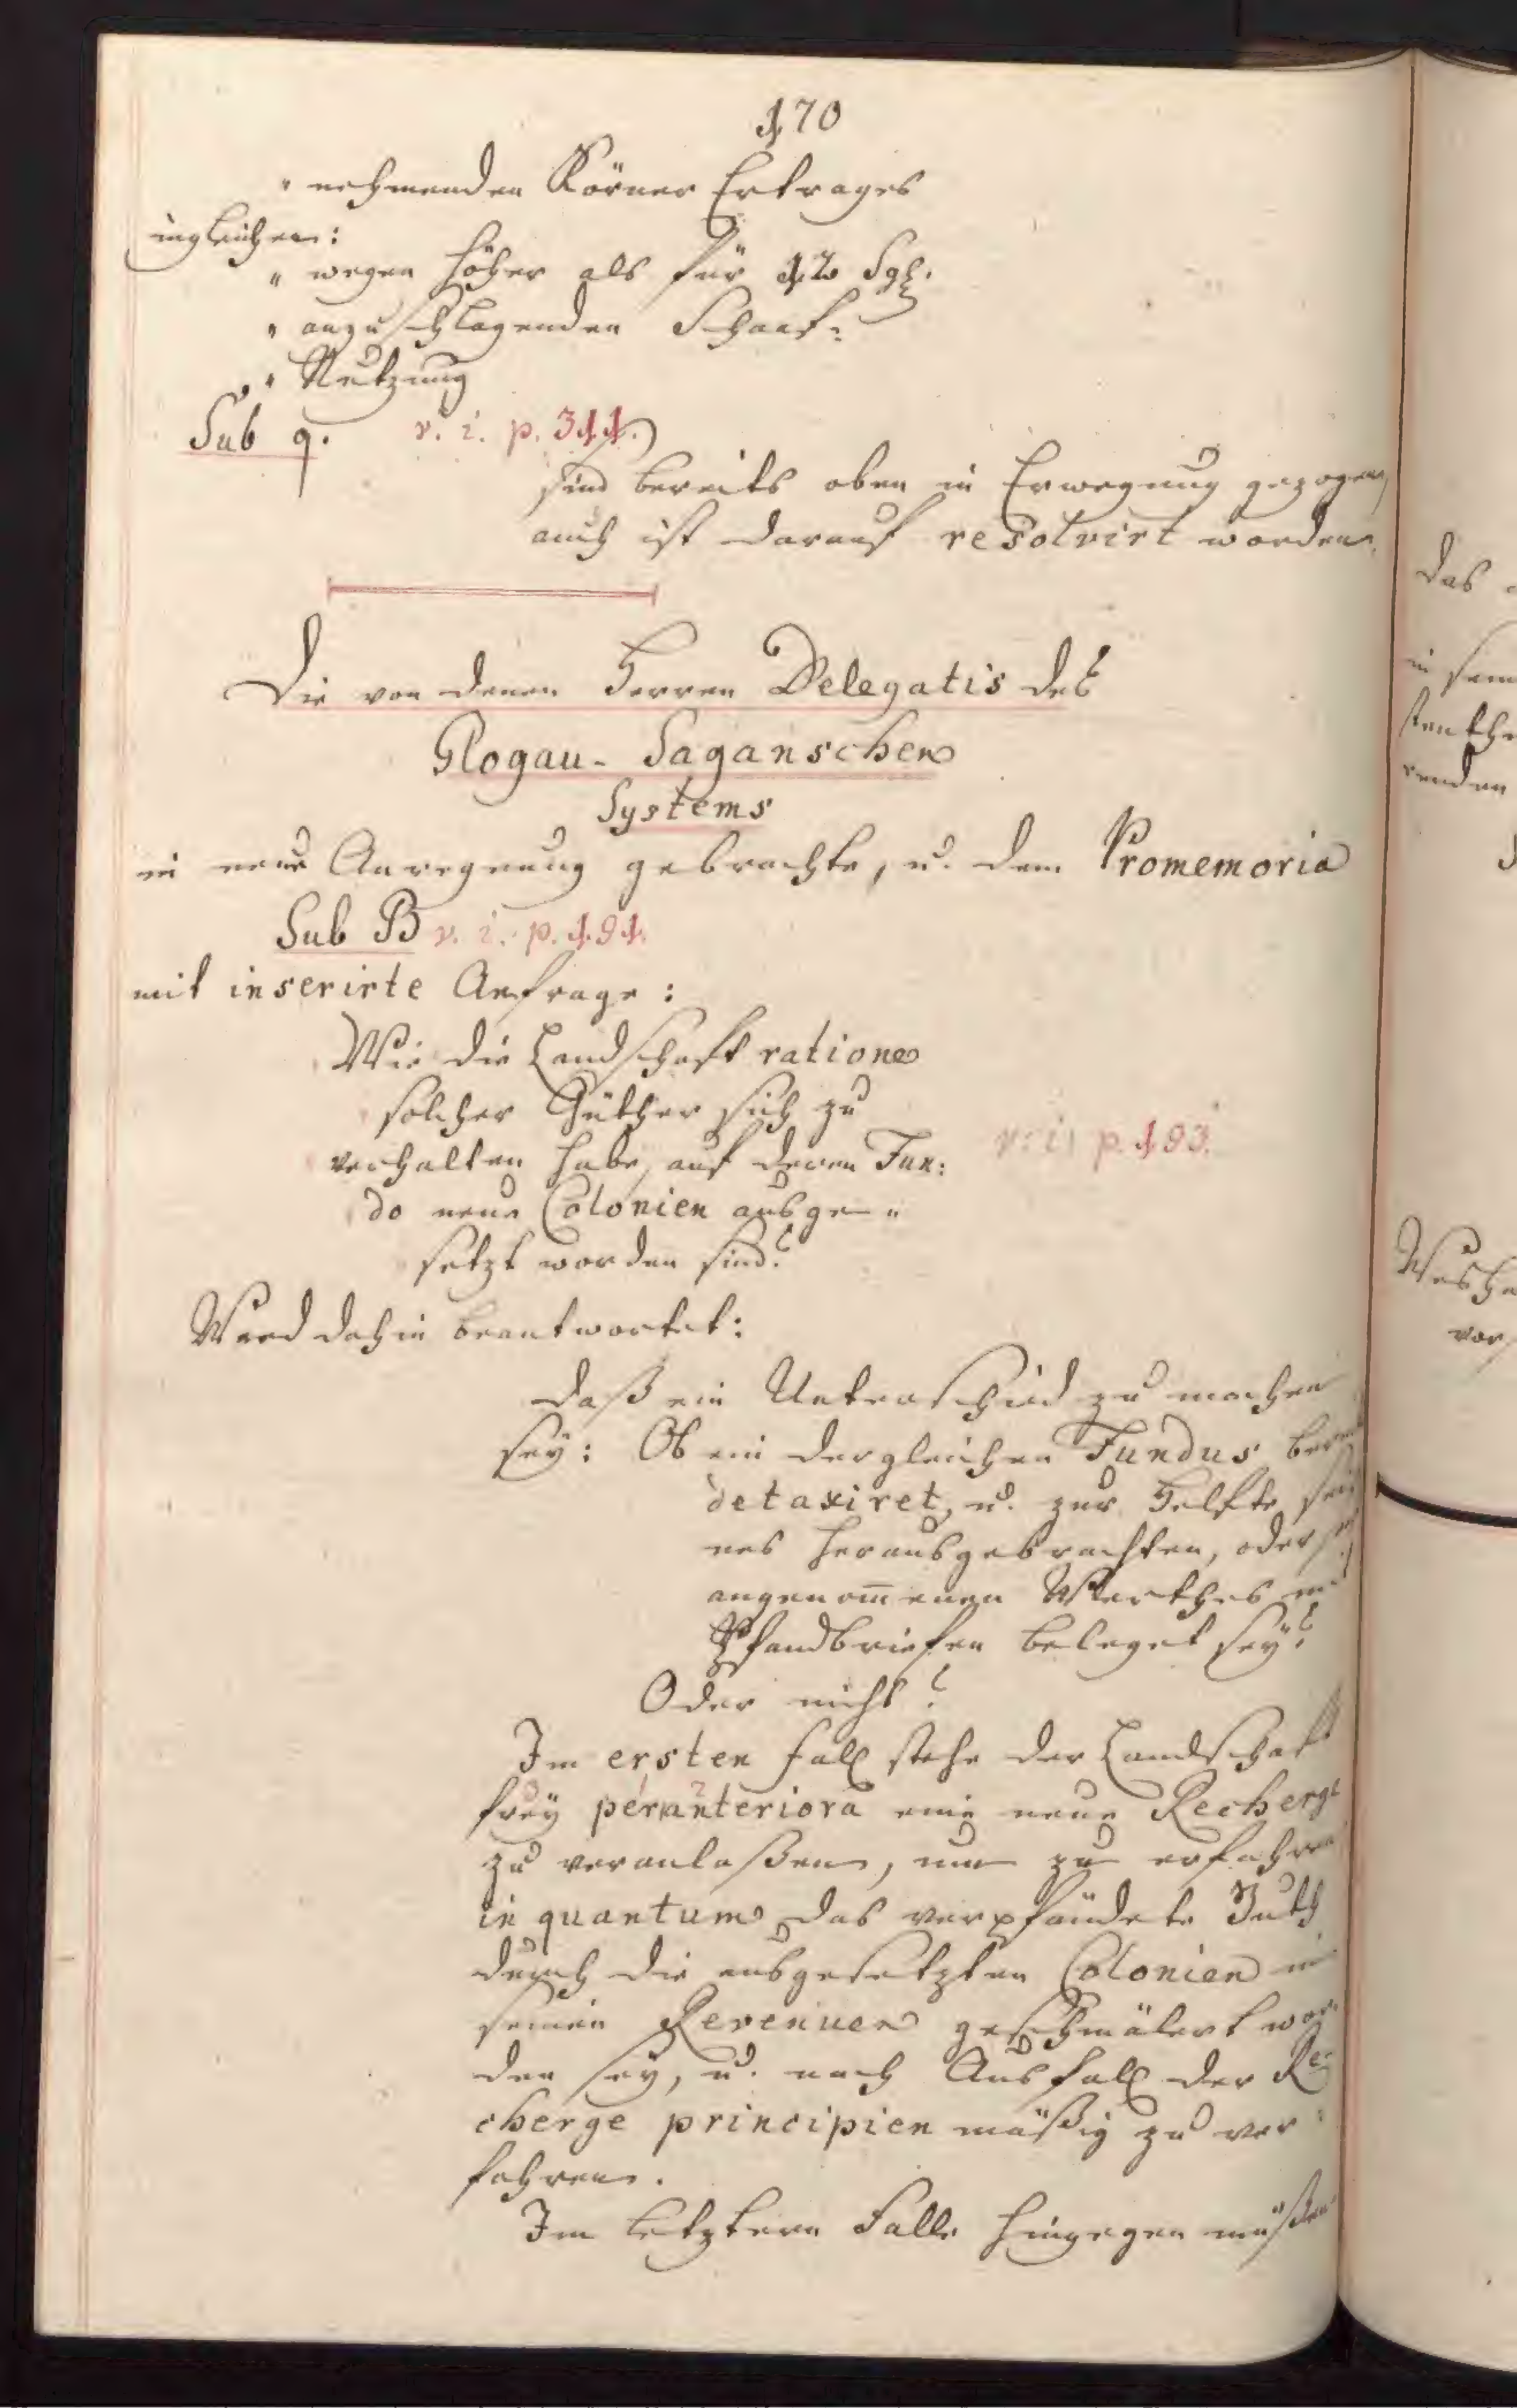 170
" nehmenden Körner Ertrages
ingleichen:
" wegen höher als für 12 Sgl.
" anzuschlagenden Schaaf-
" Nutzung
Sub q. v. i. p. 311.
sind bereits oben in Erwegnung gezogen,
auch ist darauf resolvirt worden.
Die von denen Herren Delegatis des
Glogau- Saganschen
Systems
in neue Anregung gebrachte, u. dem Promemoria
Sub B v. i. p. 191.
mit inserirte Anfrage:
Wie die Landschaft ratione
solcher Güther sich zu
verhalten habe, auf deren Fun:
v. i. p. 193.
do neue Colonien ausge-"
setzt worden sind?
Wird dahin beantwortet:
daß ein Unterschied zu machen
sey: Ob ein dergleichen Fundus
detaxiret, u. zur Helfte sei
nes herausgebrachten, oder
angenom̄enen Werthes
Pfandbriefen beleget sey?
Oder nicht?
Im ersten Fall stehe der Landschaft
frey per anteriora eine neue Recherge
zu veranlaßen, um zu erfahren
in quantum das verpfändete Guth
durch die ausgesetzten Colonien in
seinen Revenuen geschmälert wor-
den sey, u. nach Ausfall der Re-
cherge principien mäßig zu ver-
fahren.
Im letztern Falle hingegen müßen
das
in
renden
vor